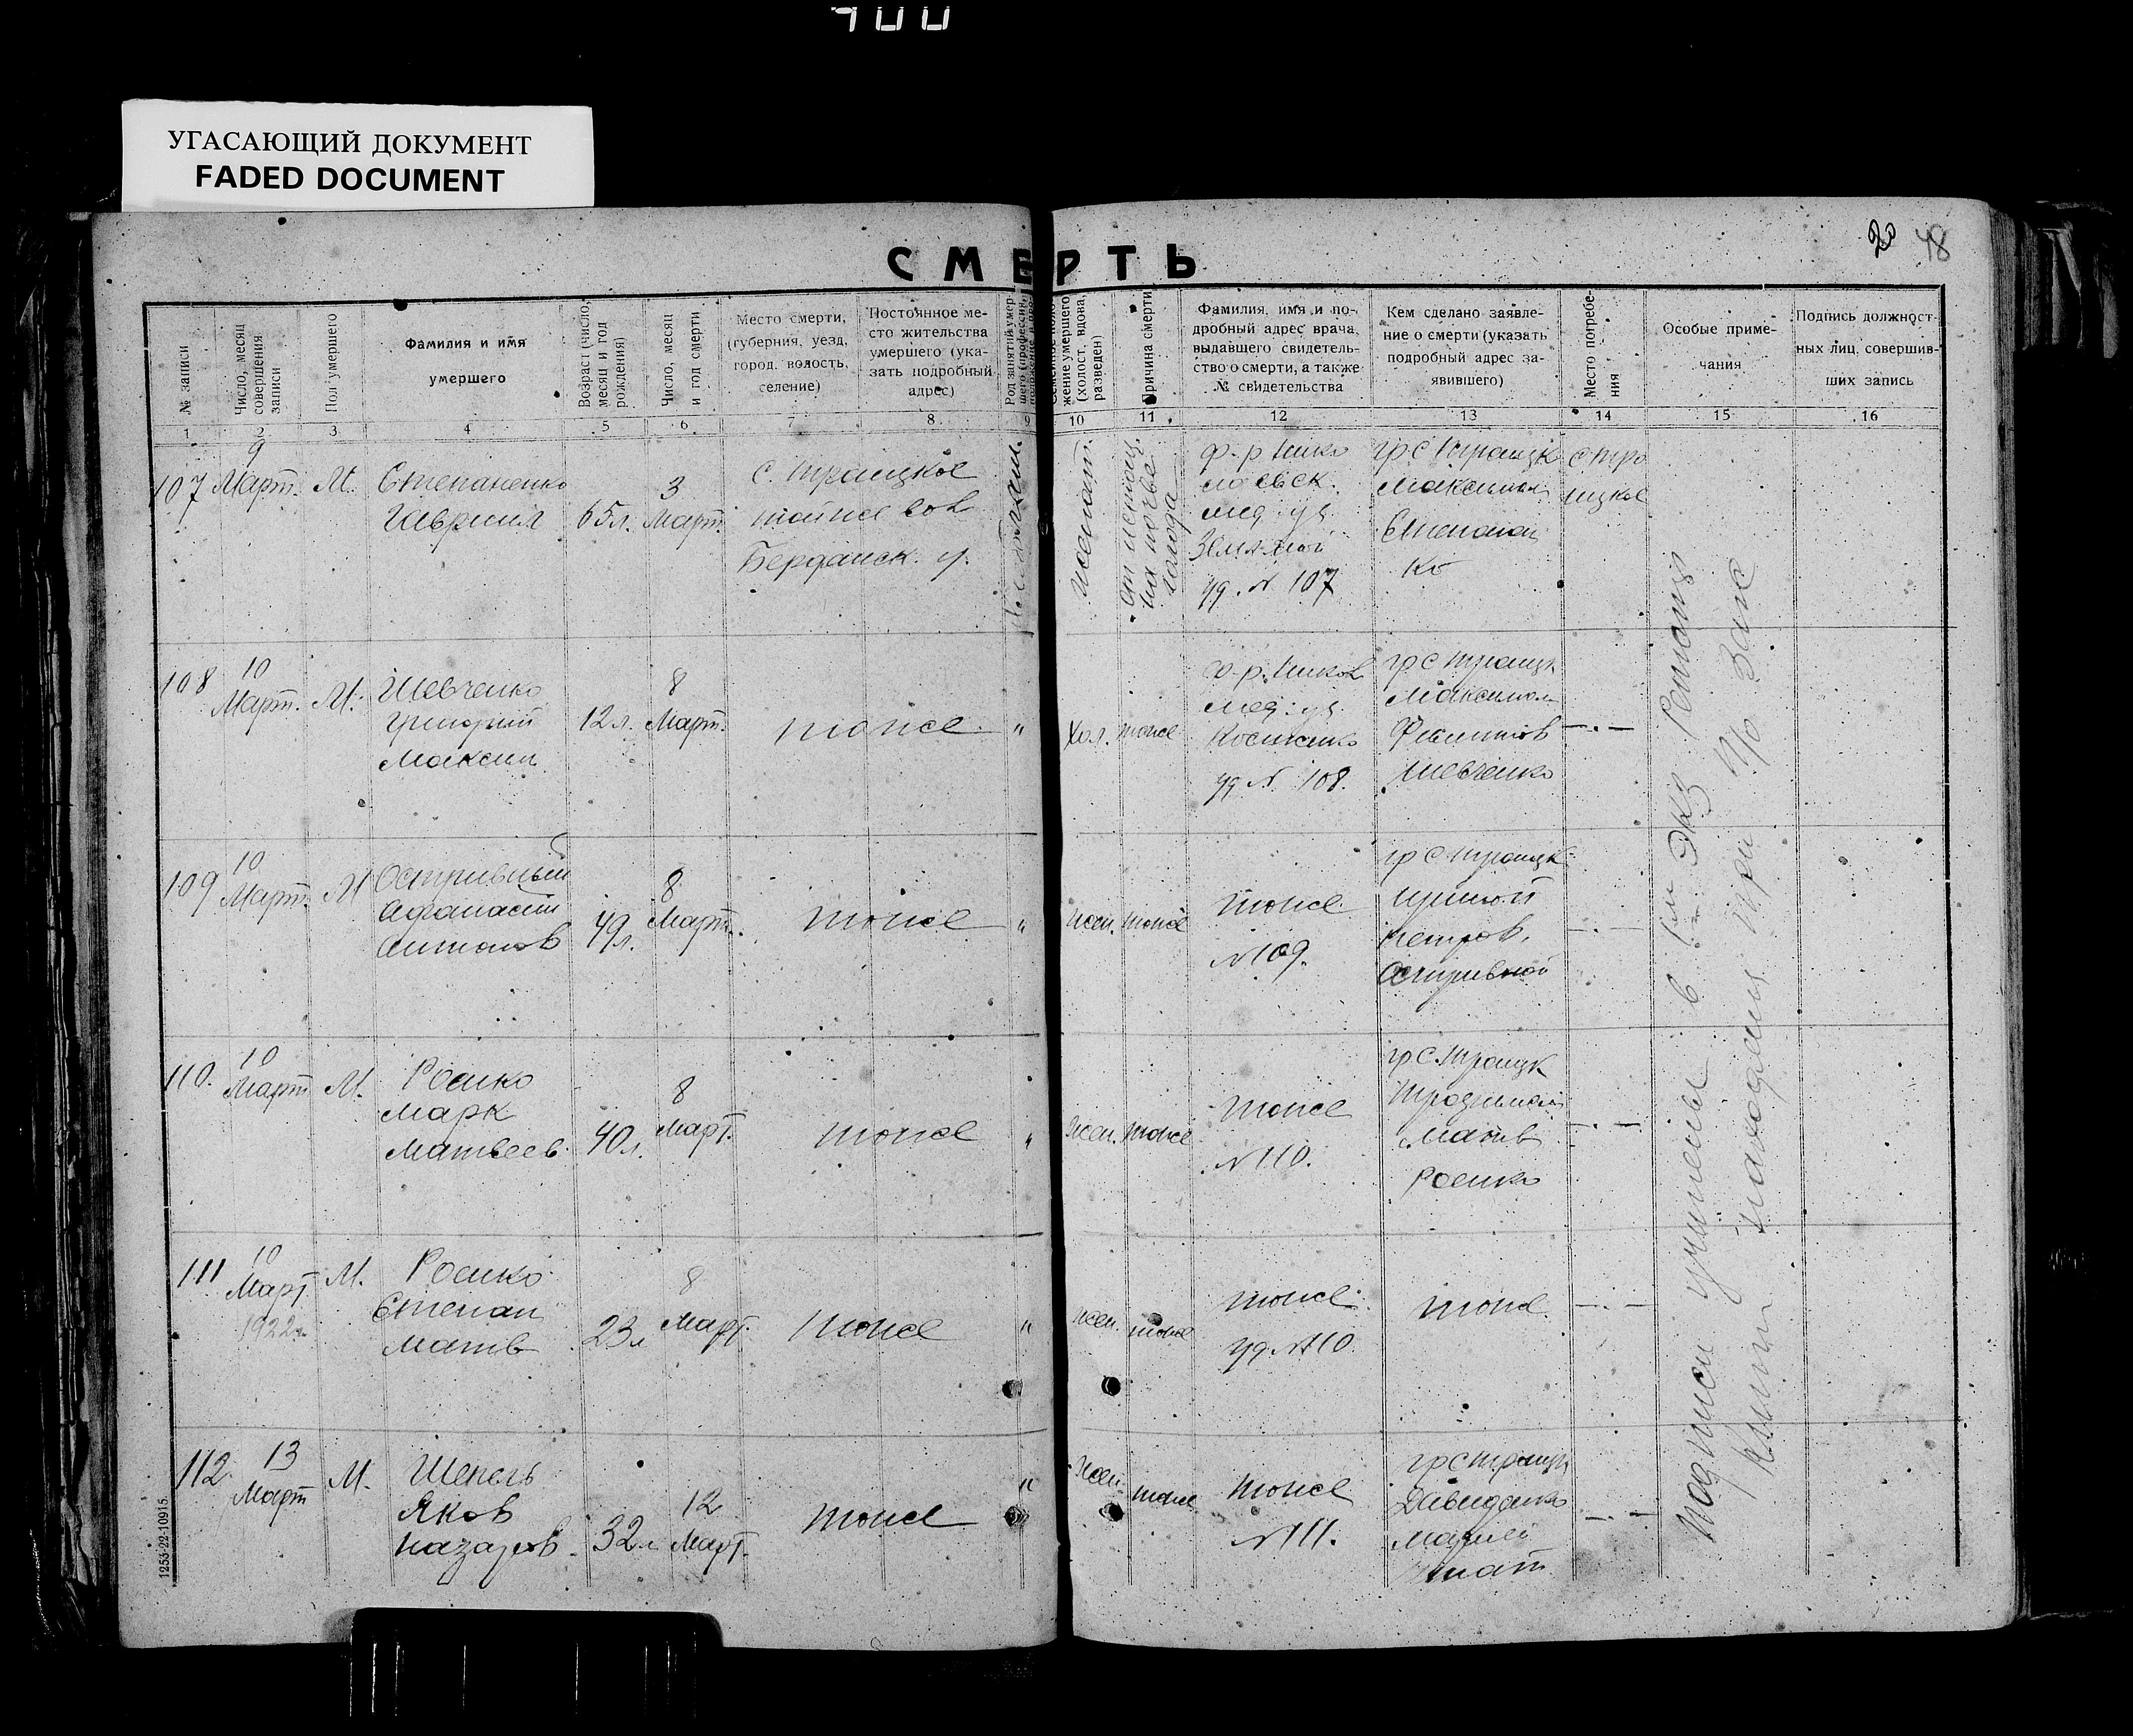 400
УГАСАЮЩИЙ ДОКУМЕНТ
FADED DOCUMENT
20 48
СМЕРТЬ
№ записи
Число, месяц совершения записи
Пол умершего
Фамилия и имя
умершего
Возраст (число, месяц и год рождения)
Число, месяц и год смерти
Место смерти,
(губерния, уезд,
город, волость,
селение)
Постоянное ме-
сто жительства
умершего (ука-
зать подробный
адрес)
жение умершего (холост, вдова, разведен)
Причина смерти
Фамилия, имя и по-
дробный адрес врача,
выдавшего свидетель-
ство о смерти, а также
№ свидетельства
Кем сделано заявле-
ние о смерти (указать
подробный адрес за-
явившего)
Место погребе-
ния
Особые приме-
чания
Подпись должност-
ных лиц, совершив-
ших запись
1 2 3 4 5 6 7 8 9 10 11 12 13 14 15 16
107
9
Март.
М.
Степаненко
Гавриил
65л.
3
Март.
с. Троицкое
тойже вол
Бердянск. у.
Женат.
от истощ.
на почве
голода
ф-р Нико
лаевск.
мед. уч.
уд. N 107
гр с Троицк
Максимом
Степанен
ко
с Тро
ицкое
108
10
Март.
М.
Шевченко
Григорий
Максим
12л.
8
Март.
тоже
"
Хол.
тоже
ф-р. Никол
мед. уч.
уд N 108.
гр с Троицк
Максимом
Шевченко
— . —
109
10
Март.
М
Остривный
Афанасий
Антонов
49л.
8
Март.
тоже
"
жен.
тоже
тоже
N 109.
гр с Троицк
Петров.
Остривной
— . —
110.
10
Март
М.
Роенко
Марк
Матвеев.
40л.
8
Март.
тоже
"
жен.
тоже
тоже
N 110.
гр с. Троицк
Матв
Роенко
— . —
111
10
Март.
1922г.
М.
Роенко
Степан
Матв
23л
8
Март.
тоже
"
жен.
тоже
тоже
уд. N 110.
тоже
— . —
112
13
Март
М.
Шепель
Яков
Назаров.
32л
12
Март.
тоже
"
жен.
тоже
тоже
N 111.
гр с Троицк
Давиденко
— . —
Подписи учинены в 1м экз
книги находящ при п/о Загс
1253-22-10915